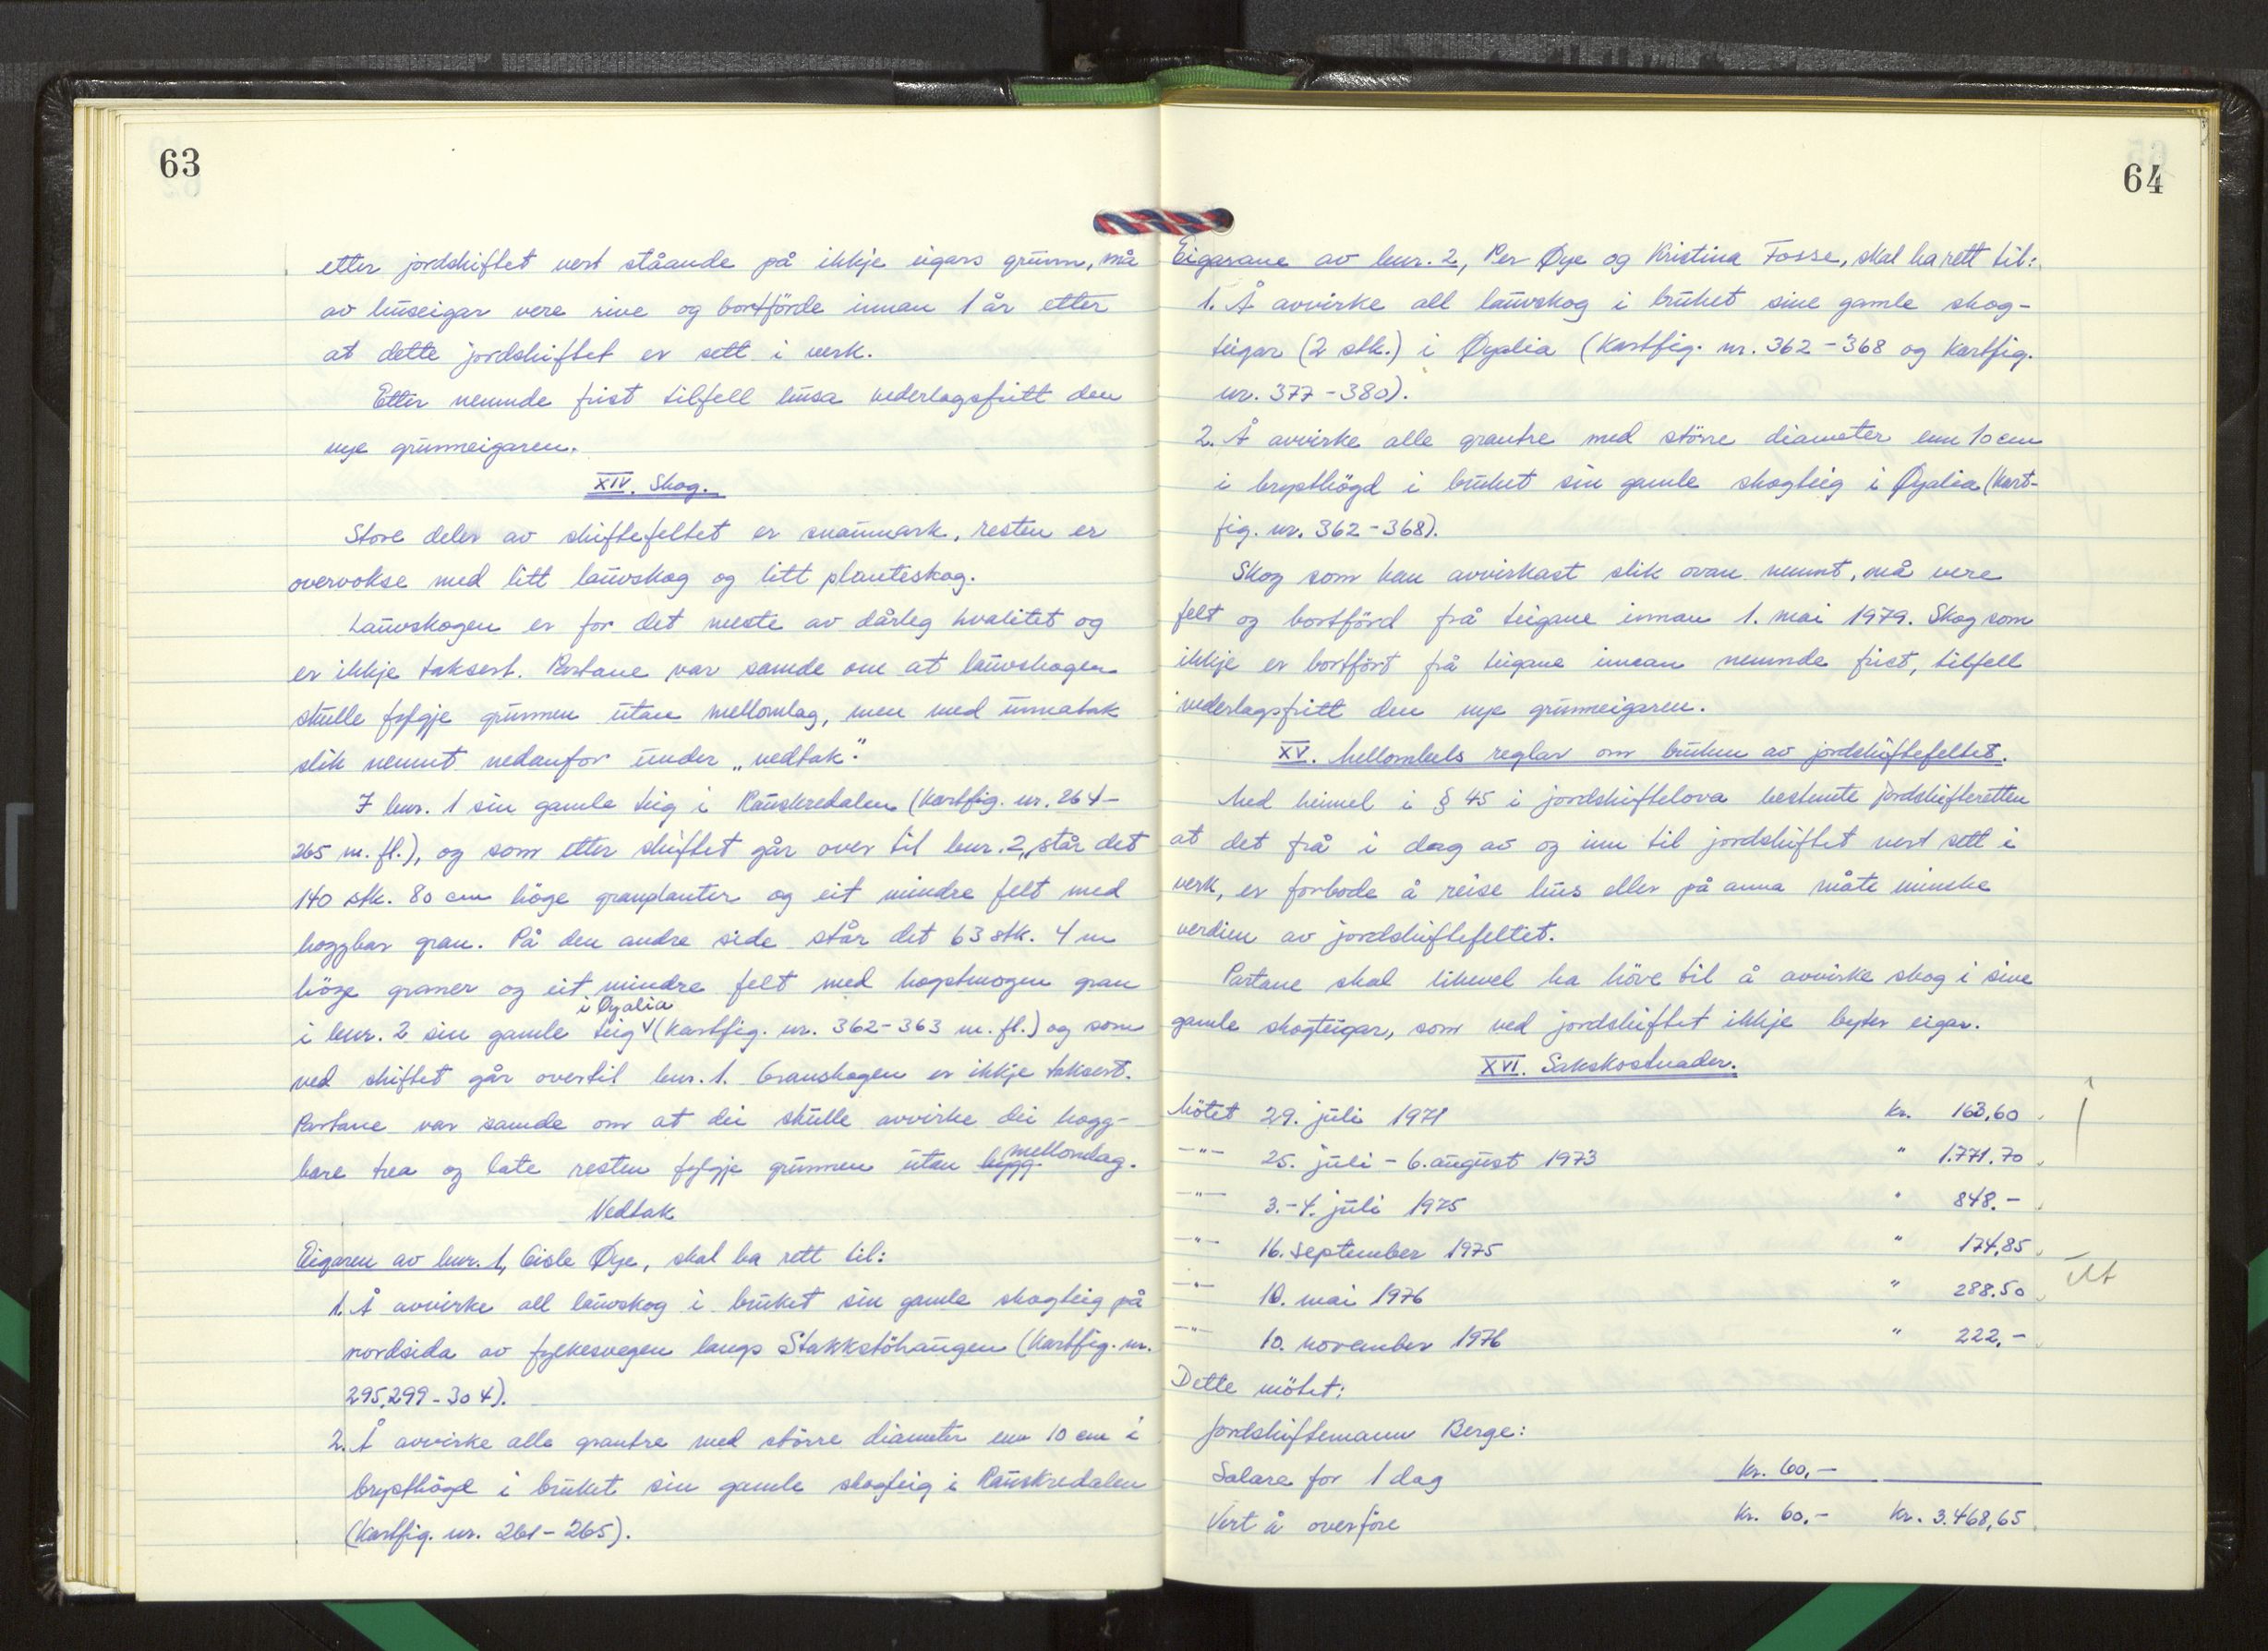 63
etter jordskiftet vert ståande på ikkje eigars grunn, må
av huseigar vere rive og bortförde innan 1 år etter
at dette jordskiftet er sett i verk.
Etter nemnde frist tilfell husa vederlagsfritt den
nye grunneigaren.
XIV. Skog.
Store deler av skiftefeltet er snaumark, resten er
overvokse med litt lauvskog og litt planteskog.
Lauvskogen er for det meste av dårleg kvalitet og
er ikkje taksert. Partane var samde om at lauvskogen
skulle fylgje grunnen utan mellomlag, men med unnatak
slik nemnt nedanfor under „vedtak".
I bnr. 1 sin gamle teig i Rauskredalen (kartfig. nr. 264-
265 m. fl.), og som etter skiftet går over til bnr. 2, står det
140 stk. 80 cm höge granplanter og eit mindre felt med
hoggbar gran. På den andre side står det 63 stk. 4 m
höge graner og eit mindre felt med hogstmogen gran
i bnr. 2 sin gamle teig i Öyalia (kartfig. nr. 362-363 m. fl.) og som
ved skiftet går overtil bnr. 1. Granskogen er ikkje taksert.
Partane var samde om at dei skulle avvirke dei hogg-
bare trea og late resten fylgje grunnen utan bygg. mellomlag.
Vedtak
Eigaren av bnr. 1, Gisle Øye, skal ha rett til:
1. Å avvirke all lauvskog i bruket sin gamle skogteig på
nordsida av fylkesvegen langs Stakkstöhaugen (Kartfig. nr.
295, 299-304).
2. Å avvirke alle grantre med större diameter enn 10 cm i
brysthögd i bruket sin gamle skogteig i Rauskredalen
(Kartfig. nr. 261-265).
64
Eigarane av bnr. 2, Per Øye og Kristina Fosse, skal ha rett til:
1. Å avvirke all lauvskog i bruket sine gamle skog-
teigar (2 stk.) i Øyalia (Kartfig. nr. 362-368 og Kartfig.
nr. 377-380).
2. Å avvirke alle grantre med större diameter enn 10 cm
i brysthögd i bruket sin gamle skogteig i Øyalia (Kart-
fig. nr. 362-368).
Skog som kan avvirkast slik ovan nemnt, må vere
felt og bortförd frå teigane innan 1. mai 1979. Skog som
ikkje er bortfört frå teigane innan nemnde frist, tilfell
vederlagsfritt den nye grunneigaren.
XV. Mellombels reglar om bruken av jordskiftefeltet.
Med heimel i § 45 i jordskiftelova bestemte jordskifteretten
at det frå i dag av og inn til jordskiftet vert sett i
verk, er forbode å reise hus eller på anna måte minske
verdien av jordskiftefeltet.
Partane skal likevel ha höve til å avvirke skog i sine
gamle skogteigar, som ved jordskiftet ikkje byter eigar.
XVI. Sakskostnader.
Mötet 29. juli 1971 kr. 163,60
-"- 25. juli - 6. august 1973 " 1.771.70
-"- 3.-4. juli 1975 " 848.-
-"- 16. september 1975 " 174,85
-"- 10. mai 1976 " 288.50
-"- 10. november 1976 " 222,-
Dette mötet:
Jordskiftemann Berge:
Salare for 1 dag kr. 60,-
Vert å overföre kr. 60,- kr. 3.468,65